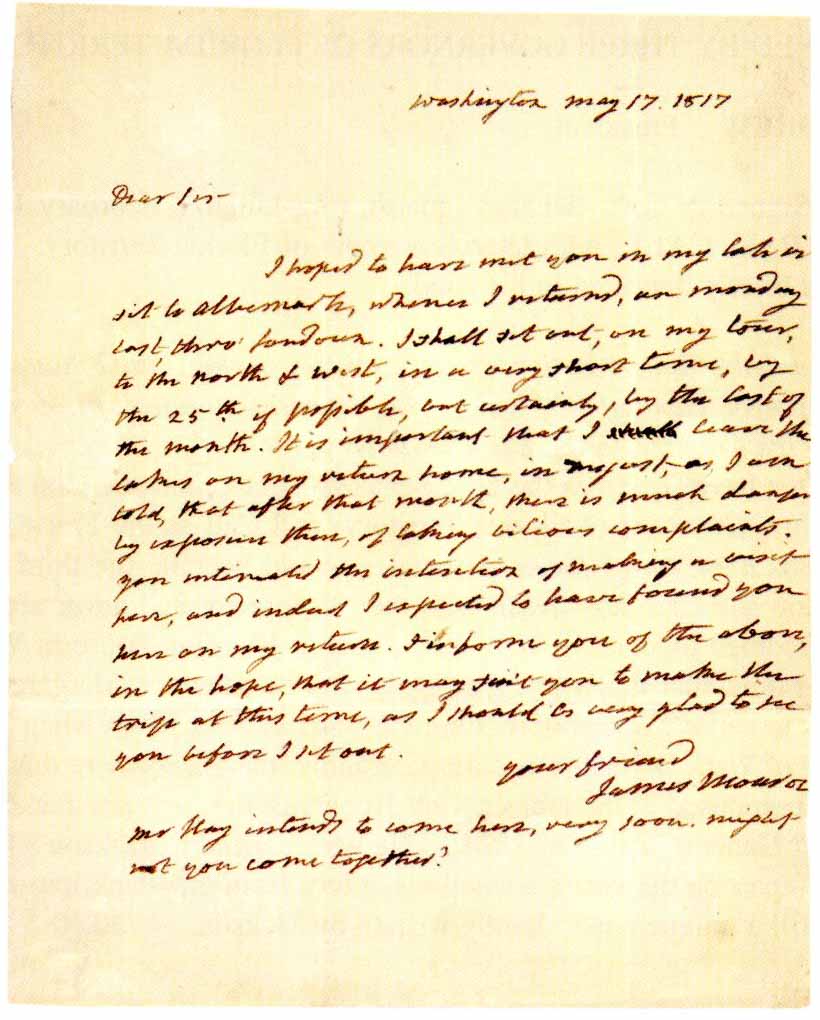 Washington May 17. 1817
Dear Sir
I hoped to have met you in my late vi
sit to Albemarle, whence I returned, on monday
last, thro' Loudoun. I shall set out, on my tour,
to the North & West, in a very short time, by
the 25th if possible, but certainly, by the last of
the month. It is important that I leave the
lakes on my return home, in August, as I am
told, that after that month, there is much danger
by exposure there, of taking bilious complaints.
you intimated the intention of making a visit
here, and indeed I expected to have found you
here on my return. I inform you of the above,
in the hope, that it may suit you to make the
trip at this time, as I should be very glad to see
you before I set out.
your friend
James Monroe
Mr Hay intends to come here, very soon. might
not you come together?